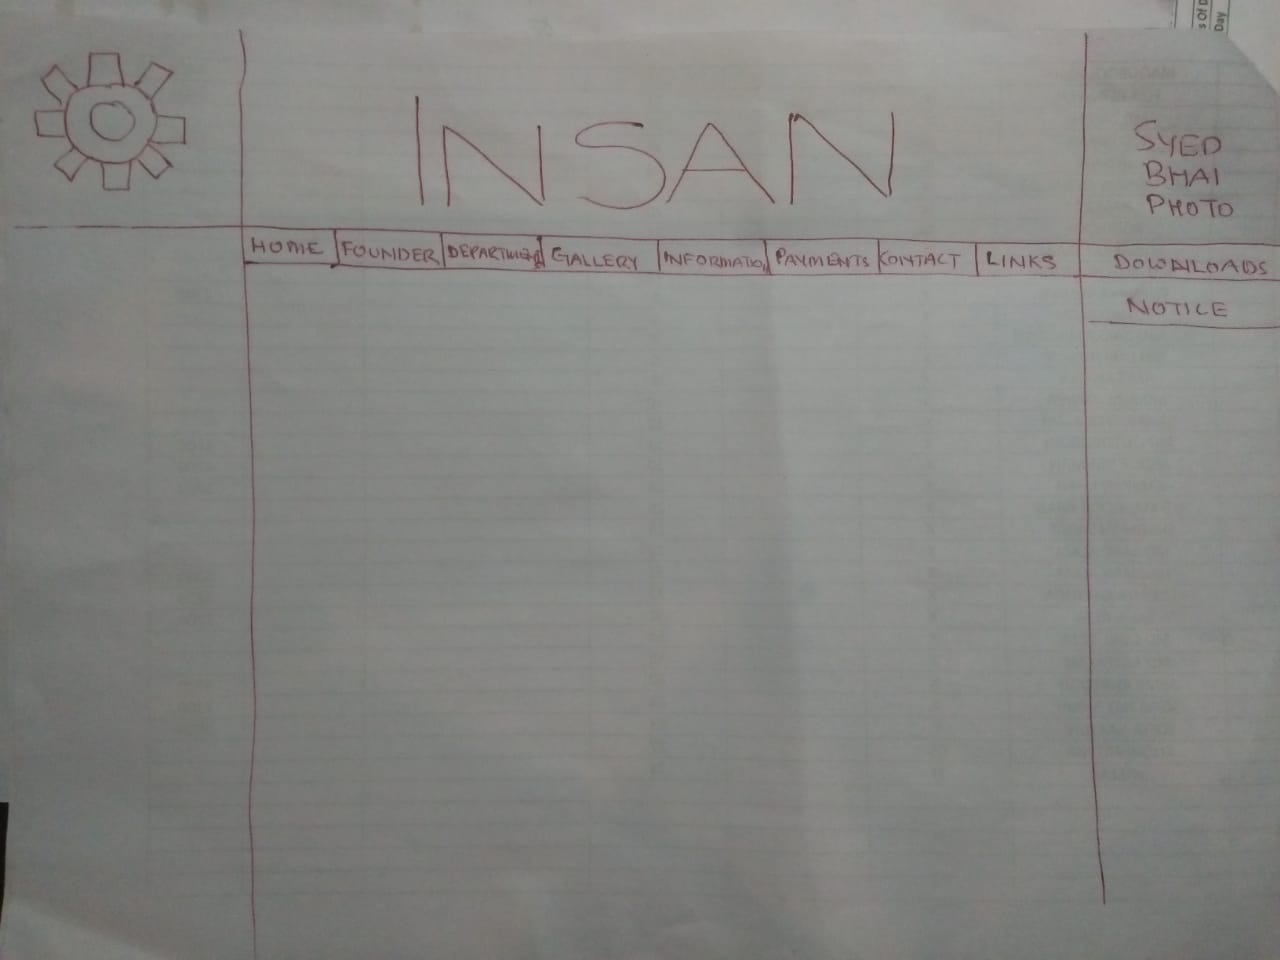 INSAN
SYED
BHAI
PHOTO
HOME FOUNDER DEPARTMENT GALLERY INFORMATION PAYMENTS CONTACT LINKS DOWNLOADS
NOTICE
s Of D
Day